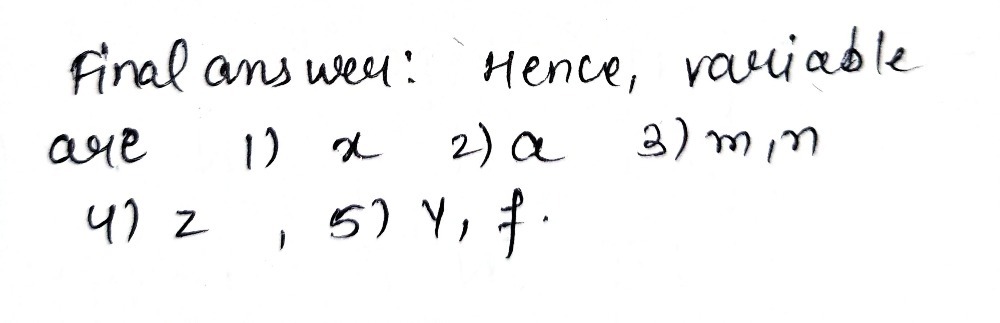 Final answer: Hence, variable
are 1) x 2) a 3) m, n
4) z , 5) Y, f.